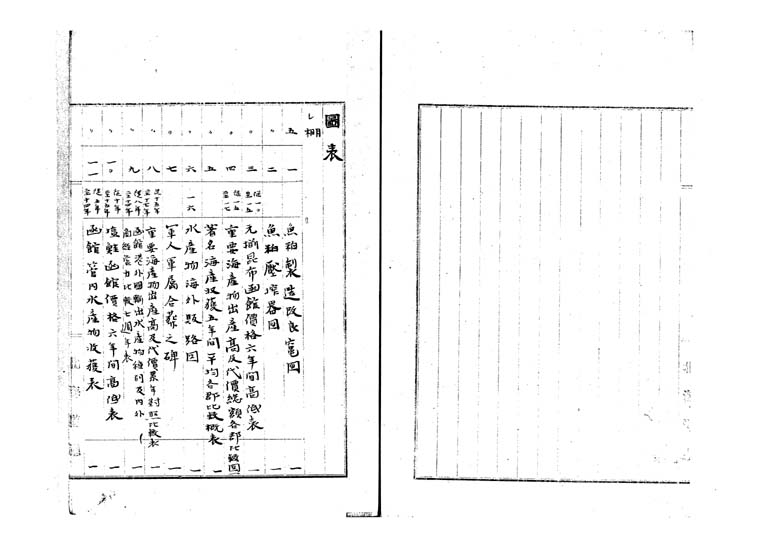 圖表
レ棚
五 一 魚粕製造改良竈図 一
〃 二 魚粕壓搾器図 一
〃 三 元揃昆布函館價格六年間高低表 一
〃 四 重要海産物出産高及代價総額各郡比較図 一
〃 五 著名海産収獲五年間平均各郡比較概表 一
〃 六 一六 水産物海外販路図 一
〃 七 軍人軍属合葬之碑 一
〃 八 重要海産物出産高及代價累年対照比較表 一
〃 九 函館港外国輸出水産物種別及内外商館営力比較七週年表 一
〃 一〇 塩鮭函館價格六年間高低表 一
〃 一一 函館管内水産物収獲表 一